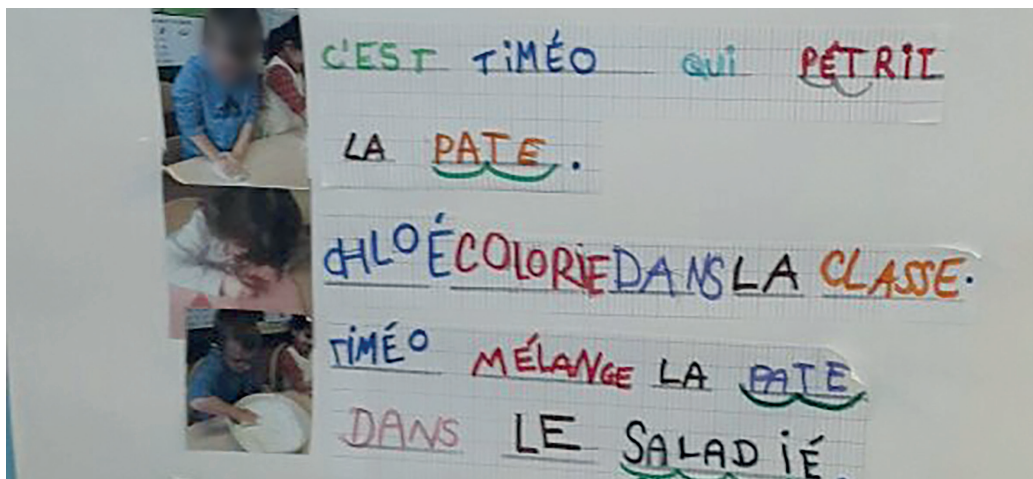 C'EST TiMÉO QUi PÉTRiT
LA PATE.
CHLOÉ COLORiE DANS LA CLASSE.
TiMÉO MÉLANGE LA PATE
DANS LE SALADiÉ.